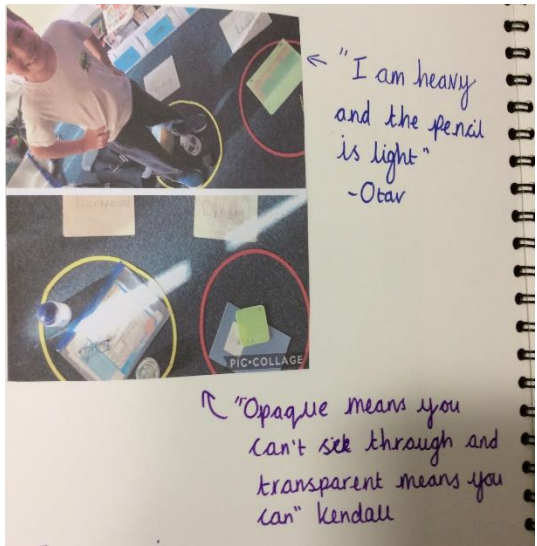 "I am heavy
and the pencil
is light"
-Otav
PIC•COLLAGE
"Opaque means you
can't see through and
transparent means you
can" Kendall